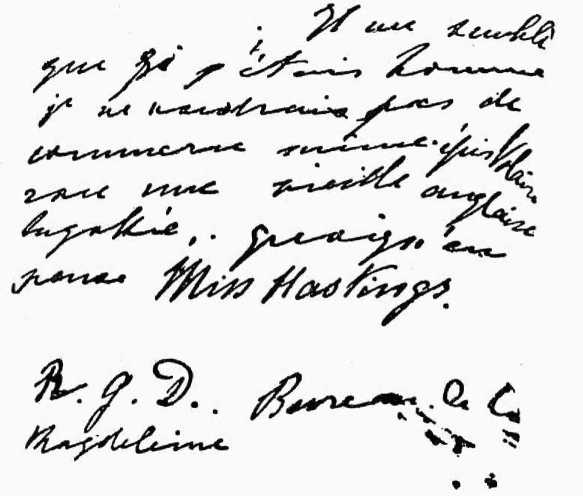 Il me semble
que si j'étais homme
je ne voudrais pas de
commerce même épistolaire
avec une vieille anglaise
quoiqu'en
pense Miss Hastings.
R. G. D. Bureau de
Magdeleine